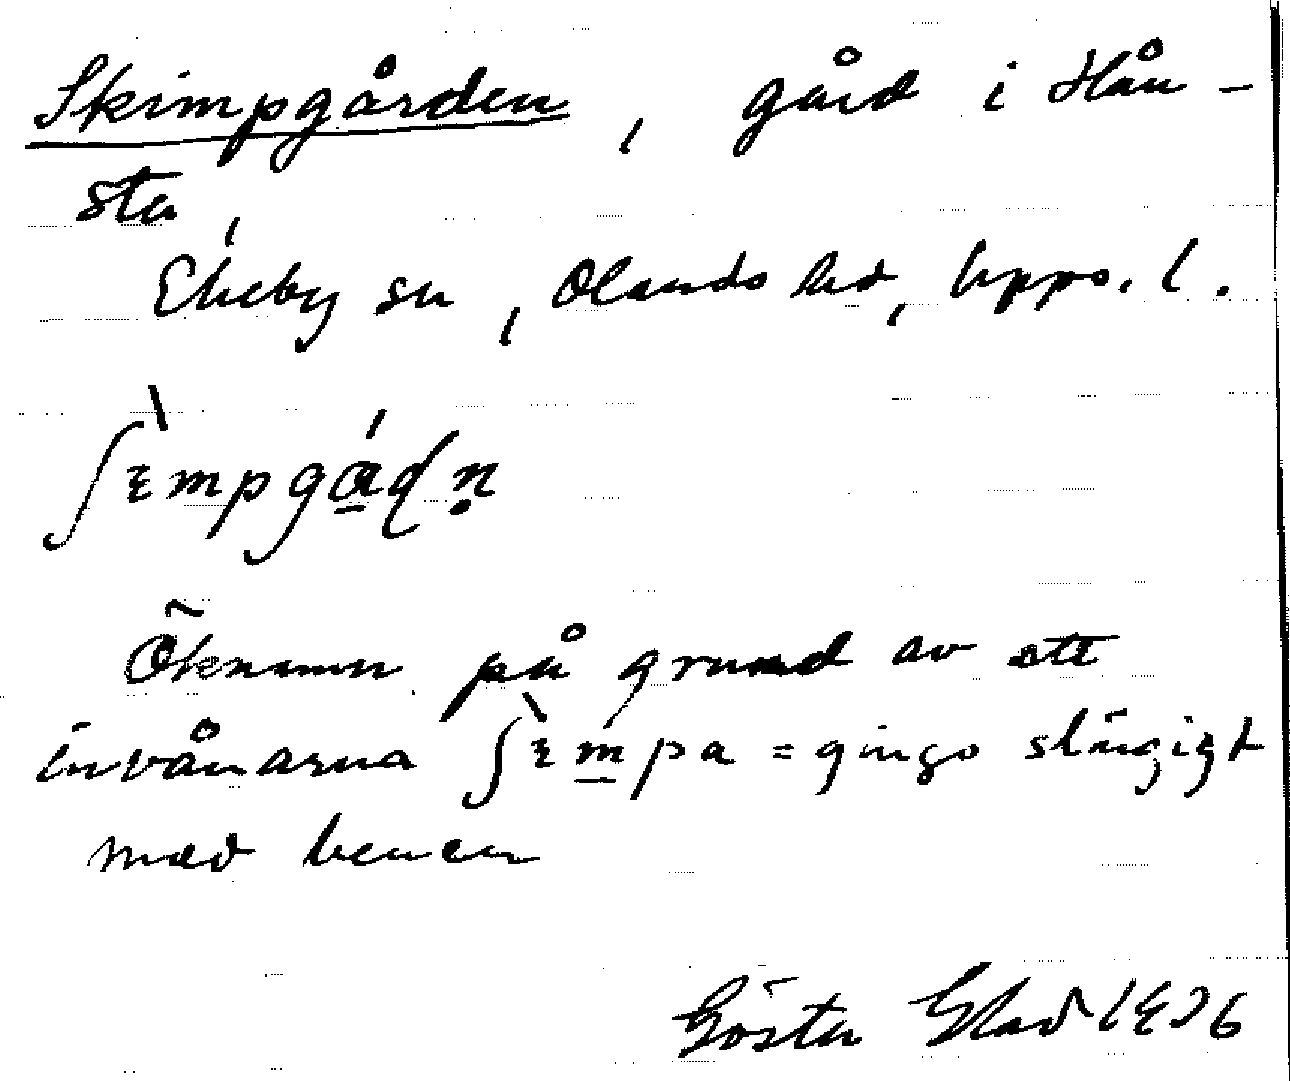 Skimpgården, gård i Hån-
sta,
Ekeby sn, Olands hd, Upps. l.
ʃɪ̀mpgá̱ɖṇ
Öknamn på grund av att
invånarna ʃɪ̀m̱pa = gingo slängigt
med benen
Gösta Elad 1926